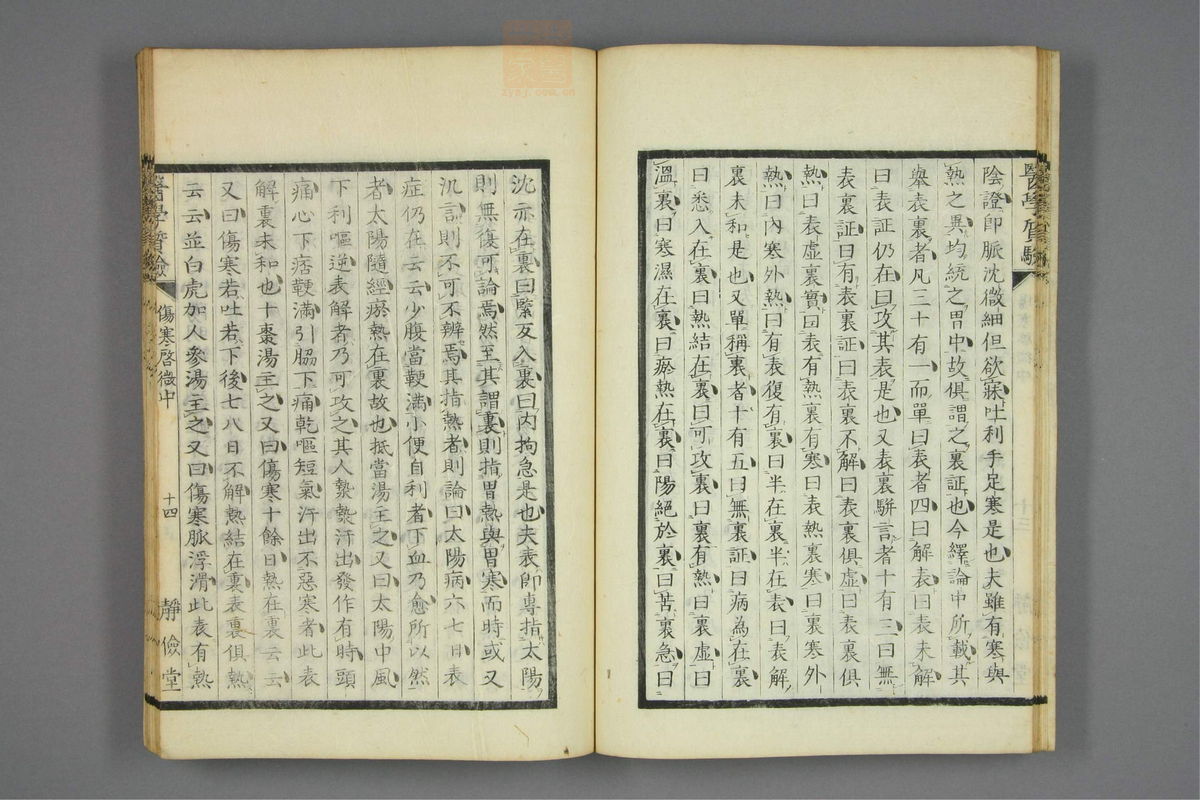 陰證即脈沈微細但欲寐吐利手足寒是也夫雖有寒與
熱之異均統之胃中故俱謂之裏証也今繹論中所載其
舉表裏者凡三十有一而單曰表者四曰解表曰表未解
曰表証仍在曰攻其表是也又表裏駢言者十有三曰無
表裏証曰有表裏証曰表裏不解曰表裏俱虛曰表裏俱
熱曰表虛裏實曰表有熱裏有寒曰表熱裏寒曰裏寒外
熱曰內寒外熱曰有表復有裏曰半在裏半在表曰表解
裏未和是也又單稱裏者十有五曰無裏証曰病為在裏
曰悉入在裏曰熱結在裏曰可攻裏曰裏有熱曰裏虛曰
溫裏曰寒濕在裏曰瘀熱在裏曰陽絕於裏曰苦裏急曰
醫學質驗
沈亦在裏曰緊反入裏曰內拘急是也夫表即專指太陽
則無復可論焉然至其謂裏則指胃熱與胃寒而時或又
汎訁則不可不辨焉其指熱者則論曰太陽病六七日表
症仍在云云少腹當鞕滿小便自利者下血乃愈所以然
者太陽隨經瘀熱在裏故也抵當湯主之又曰太陽中風
下利嘔逆表解者乃可攻之其人漐漐汗出發作有時頭
痛心下痞鞕滿引脇下痛乾嘔短氣汗出不惡寒者此表
解裏未和也十棗湯主之又曰傷寒十餘日熱在裏云云
又曰傷寒若吐若下後七八日不解熱結在裏表裏俱熱
云云並白虎加人參湯主之又曰傷寒脈浮滑此表有熱
醫學質驗
傷寒啓微中
十四
靜儉堂
zysj.com.cn